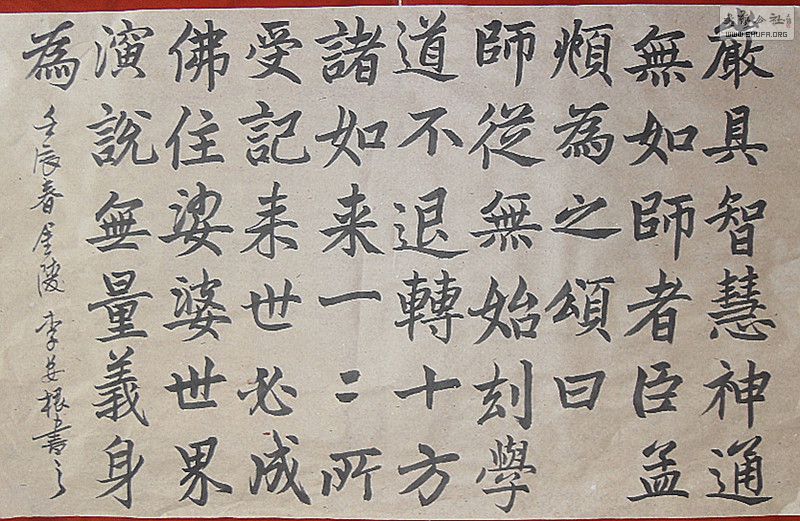 嚴具智慧神通
無如師者臣孟
頫為之頌曰
師從無始刻學
道不退轉十方
諸如来一二所
受記耒世必成
佛住娑婆世界
演說無量義身
為
壬辰春金陵李安根書之
WWW.SHUFA.ORG